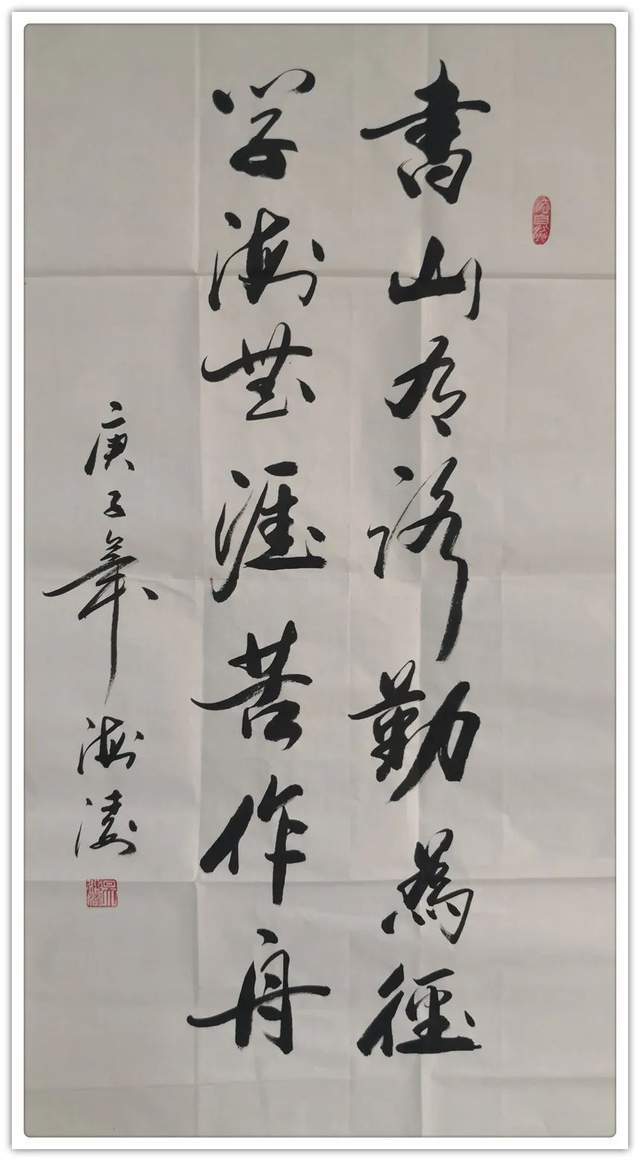 書山有路勤為徑
学海無涯苦作舟
庚子年海涛